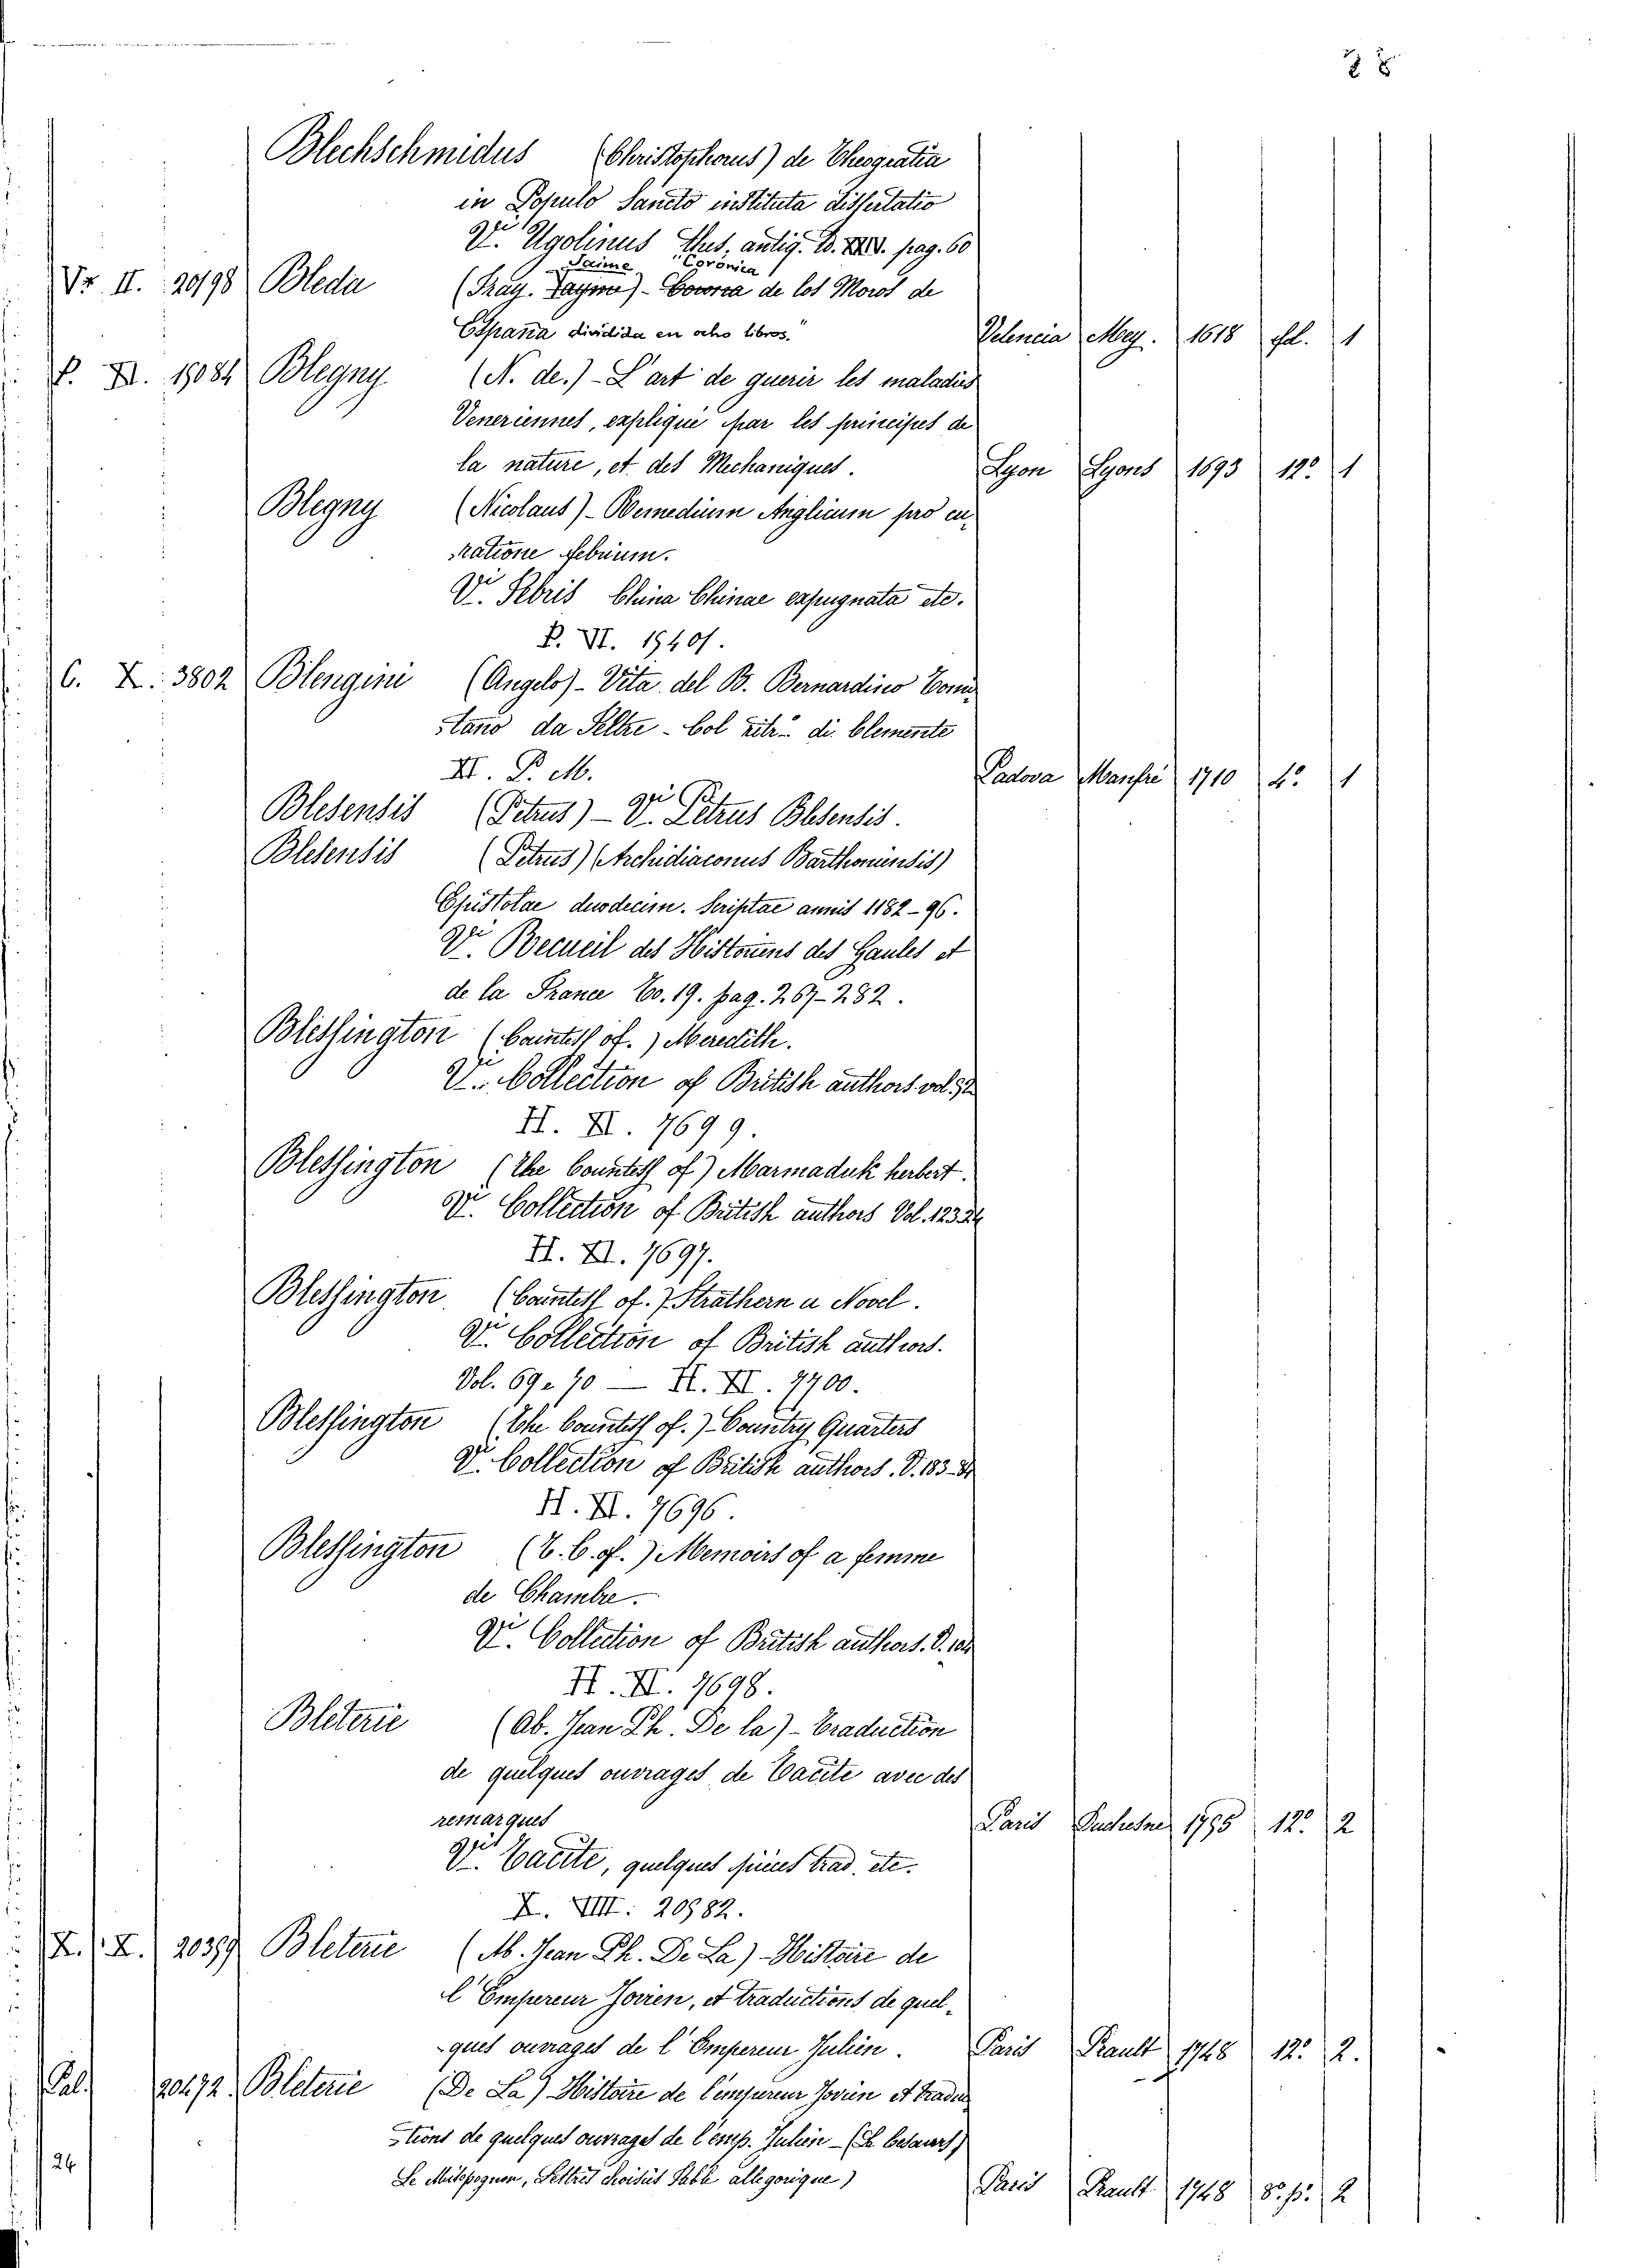 Blechschmidus (Christophorus) de Theogratia
in Populo Sancto instituta dissertatio
Vi. Ugolinus Thes. antiq. T. XXIV. pag. 60
Jaime "Corónica
Vr II. 20198 Bleda (Fray. Jayme) - Coronca de los Moros de
España dividida en ocho libros." Velencia Mey. 1618 fol. 1
P. XI. 19084 Blegny (N. de.) - L'art de guerir les maladies
Veneriennes, expliqué par les principes de
la nature, et des Mechaniques. Lyon Lyons 1693 12º 1
Blegny (Nicolaus) - Remedium Anglicum pro cu-
ratione febrium.
Vi. Febris China Chinae expugnata etc.
P. VI. 19401.
C. X. 3802 Blengini (Angelo) - Vita del B. Bernardino Tomi-
stano da Feltre - Col ritr: di Clemente
XI. P. M. Padova Manfré 1710 4º 1
Blesensis (Petrus) - Vi. Petrus Blesensis.
Blesensis (Petrus) (Archidiaconus Barthoniensis)
Epistolae duodecim. Scriptae annis 1182-96.
Vi. Recueil des Historiens des Gaules et
de la France To. 19. pag. 267-282.
Blessington (Countess of.) Meredith.
Vi. Collection of British authors vol. 52
H. XI. 7699.
Blessington (The Countess of) Marmaduk herbert.
Vi. Collection of British authors Vol. 123.24
H. XI. 7697.
Blessington (Countess of.) Strathern a Novel.
Vi. Collection of British authors.
Vol. 69 e 70 — H. XI. 7700.
Blessington (The Countess of.) - Country Quarters
Vi. Collection of British authors. V. 183-84
H. XI. 7696.
Blessington (T. C. of.) Memoirs of a femme
de Chambre.
Vi. Collection of British authors. V.
H. XI. 7698.
Bleterie (Ab. Jean Ph. De la) - Traduction
de quelques ouvrages de Tacite avec des
remarques Paris Duchesne 1755 12º 2
Vi. Tacite, quelques pieces trad. etc.
X. VIII. 20582.
X. X. 20359 Bleterie (Ab. Jean Ph. De La) - Histoire de
l'Empereur Jovien, et traductions de quel-
-ques ouvrages de l'Empereur Julien. Paris Prault 1748 12º 2.
Pal. 20472. Bleterie (De La) Histoire de l'empereur Jovien et traduc-
-tions de quelques ouvrages de l'emp. Julien - (Le Cesaurs)
24 Le Misopognon, Lettres choisies Fable allegorique) Paris Prault 1748 8º p. 2